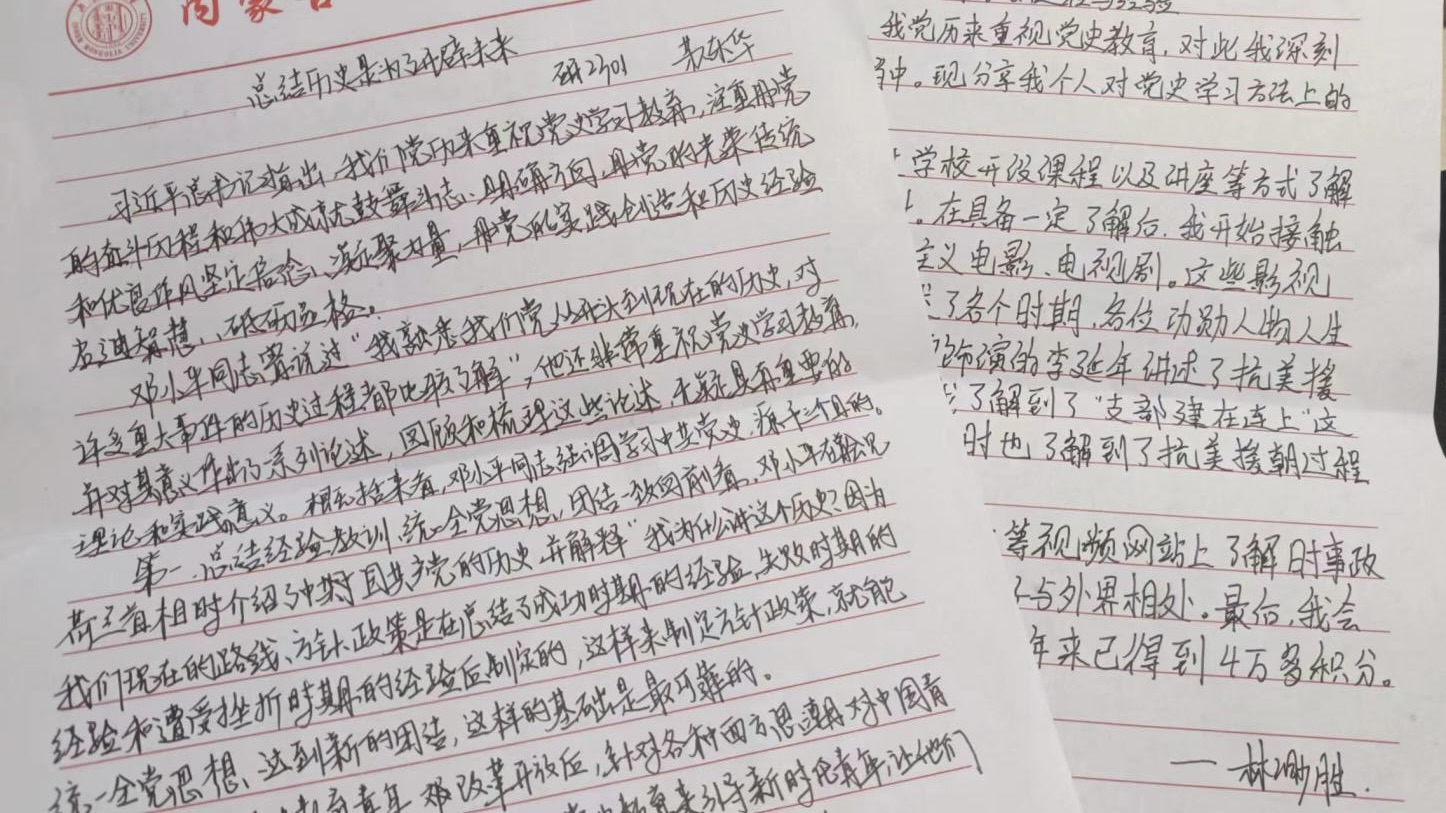 内蒙古
总结历史是为了开辟未来
研2201
习近平总书记指出，我们党历来重视党史学习教育，注重用党
的奋斗历程和伟大成就鼓舞斗志、明确方向，用党的光荣传统
和优良作风坚定信念、凝聚力量，用党的实践创造和历史经验
启迪智慧、砥砺品格。
邓小平同志曾说过“我熟悉我们党从开头到现在的历史，对
许多重大事件的历史过程都比较了解”，他还非常重视党史学习教育，
并对其意义作出了系列论述，回顾和梳理这些论述，无疑具有重要的
理论和实践意义。概括来看，邓小平同志强调学习中共党史，有三个目的。
第一，总结经验教训，统一全党思想，团结一致向前看。邓小平在会见
首相时介绍了中共党的历史，并解释“我为什么讲这个历史？因为
我们现在的路线、方针、政策是在总结了成功时期的经验、失败时期的
经验和遭受挫折时期的经验后制定的，这样来制定方针政策，就能
统一全党思想，达到新的团结，这样的基础是最可靠的。
改革开放后，针对各种西方思潮对中国青
教育来引导新时代青年，让他们
我党历来重视党史教育，对此我深刻
中。现分享我个人对党史学习方法上的
学校开设课程以及讲座等方式了解
。在具备一定了解后，我开始接触
主义电影、电视剧。这些影视
了各个时期，各位功勋人物人生
饰演的李延年讲述了抗美援
了解到了“支部建在连上”这
时也了解到了抗美援朝过程
等视频网站上了解时事政
与外界相处。最后，我会
年来已得到4万多积分。